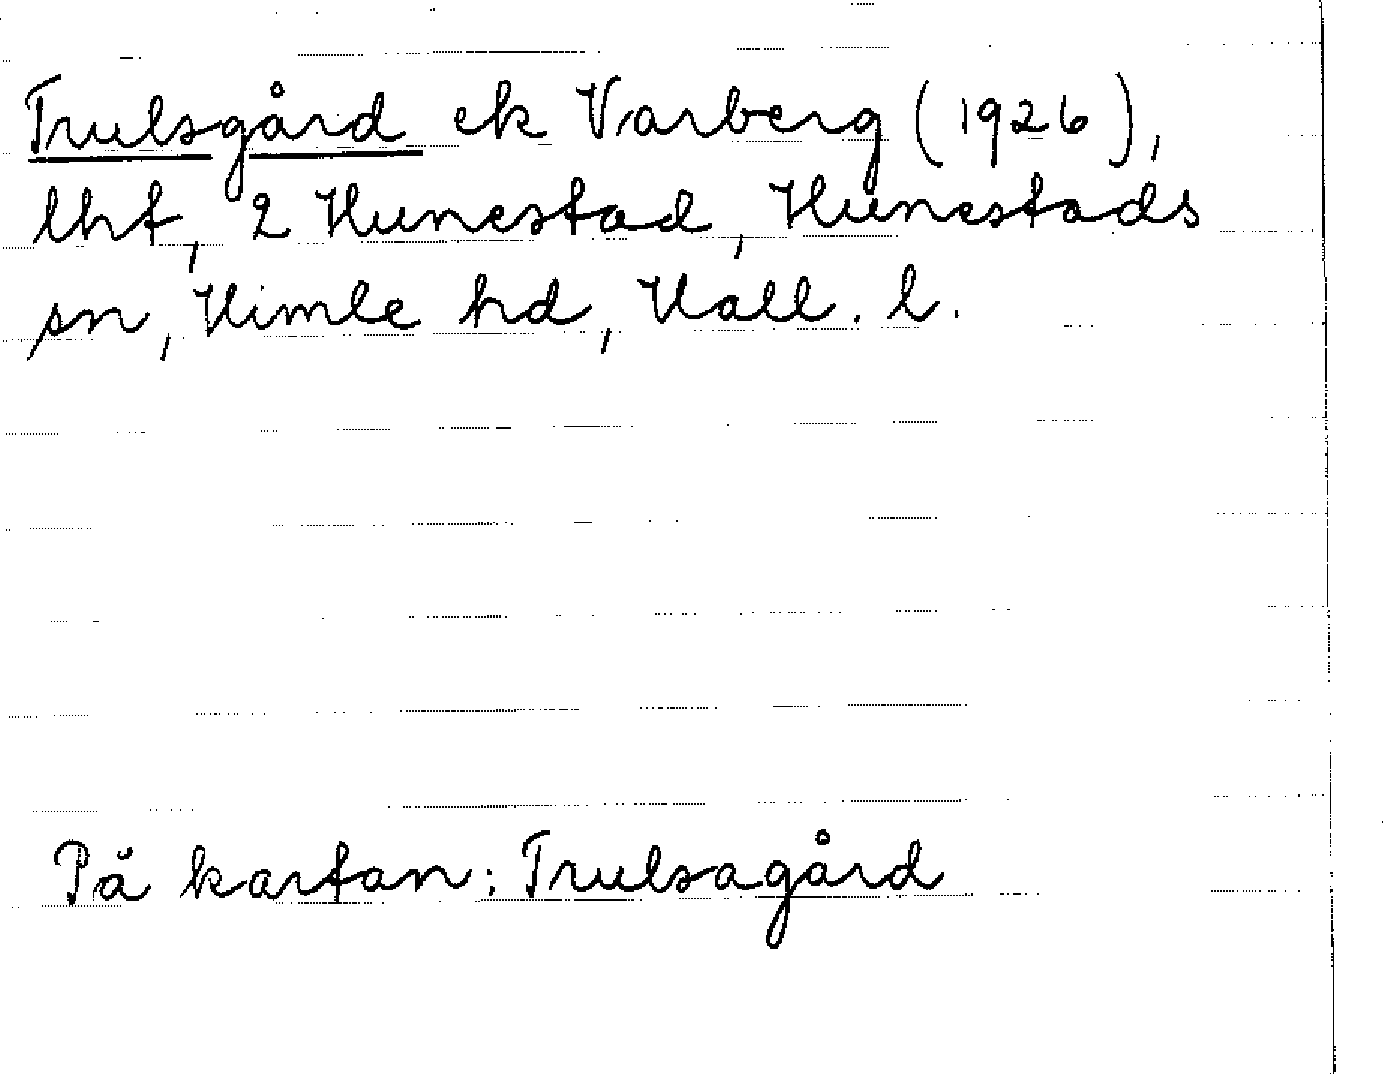 Trulsgård ek Varberg (1926),
lht, 2 Hunestad, Hunestads
sn, Himle hd, Hall. l.
På kartan: Trulsagård